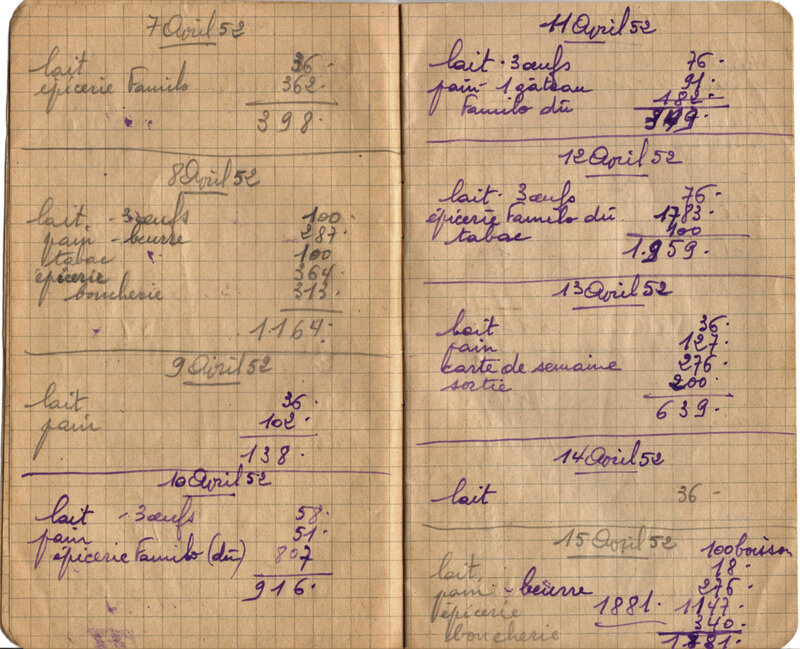 7 Avril 52
lait 36.
épicerie Familo 362.
398.
8 Avril 52
lait - 3 œufs 100.
pain - beurre 287.
tabac 100
épicerie 364.
boucherie 313.
1164.
9 Avril 52
lait 36.
pain 102.
138.
10 Avril 52
lait - 3 œufs 58.
pain 51.
épicerie Familo (dû) 807
916.
11 Avril 52
lait - 3 œufs 76.
pain - 1 gâteau 91.
Familo dû 182.
349.
12 Avril 52
lait - 3 œufs 76.
épicerie Familo dû 1783.
tabac 100
1.959.
13 Avril 52
lait 36.
pain 127.
carte de semaine 276.
sortie 200.
639.
14 Avril 52
lait 36 -
15 Avril 52
100 boisson
lait, 18.
pain - beurre 276.
épicerie 1881. 1147.
boucherie 340.
1881.